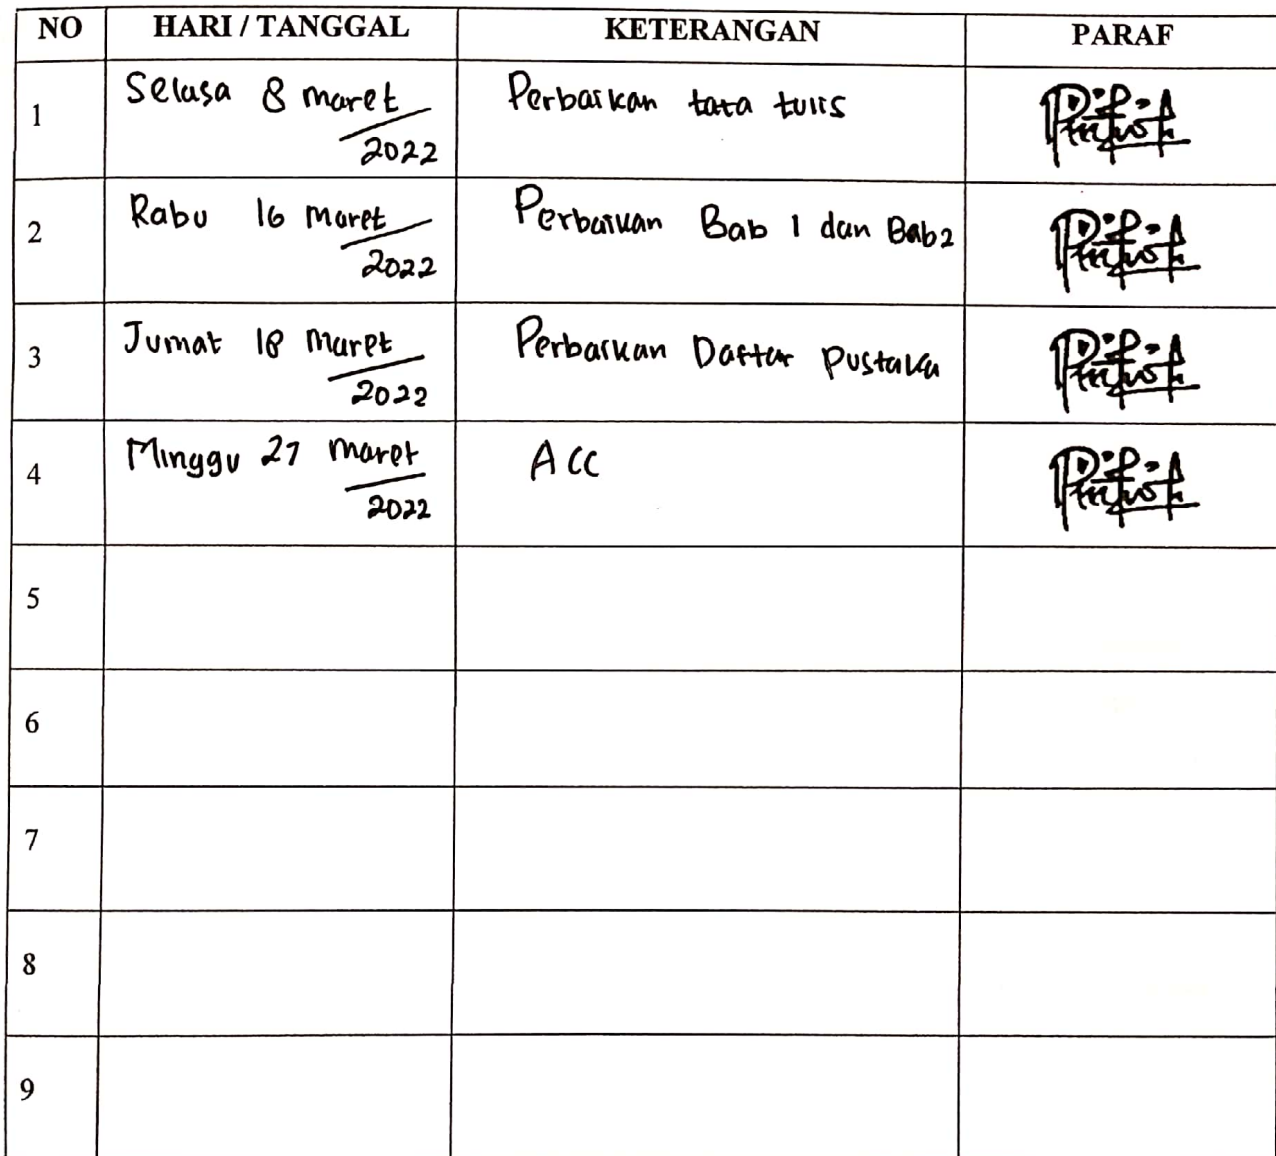 NO HARI / TANGGAL KETERANGAN PARAF
1 Selasa 8 maret Perbaikan tata tulis
2022
2 Rabu 16 Maret Perbaikan Bab 1 dan Bab 2
2022
3 Jumat 18 Maret Perbaikan Daftar Pustaka
2022
4 Minggu 27 Maret ACC
2022
5
6
7
8
9